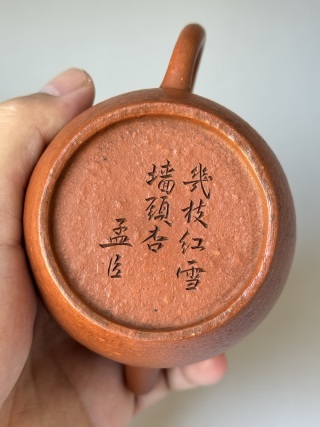 幾枝紅雪
墙頭杏
孟臣